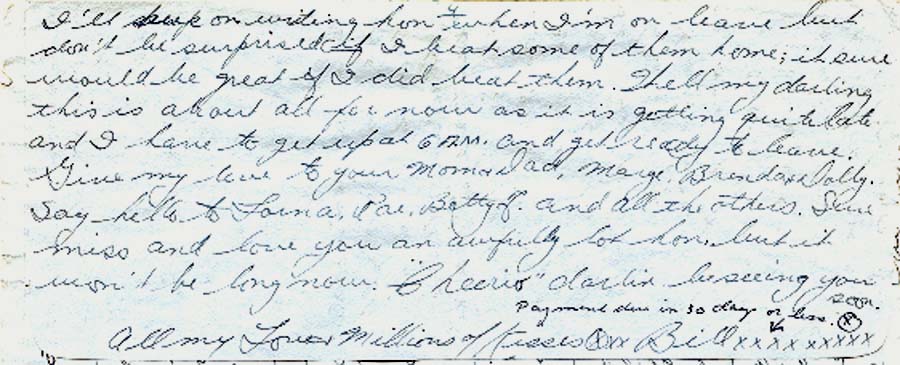 I'll keep on writing hon when I'm on leave but
don't be surprised if I beat some of them home; it sure
would be great if I did beat them. Well my darling
this is about all for now as it is getting quite late
and I have to get up at 6 AM. and get ready to leave.
Give my love to your Mom & Dad, Marge, Brenda & Dolly.
Say hello to Lorna, Pae, Betty J. and all the others. Sure
miss and love you an awfully lot hon, but it
won't be long now. "Cheerio" darlin be seeing you
soon.
Payment due in 30 days or less. (X)
All my Love & Millions of Kisses (X)xx Bill xxxxxxxxxx